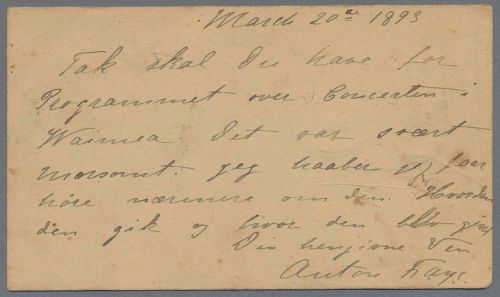 March 20de 1893
Tak skal Du have for
Programmet over Concerten i
Waimea. Det var svært
morsomt. jeg haaber jeg faar
höre nærmere om den. Hvordan
den gik og hvor den blev
Din hengivne Ven
Anton Faye.